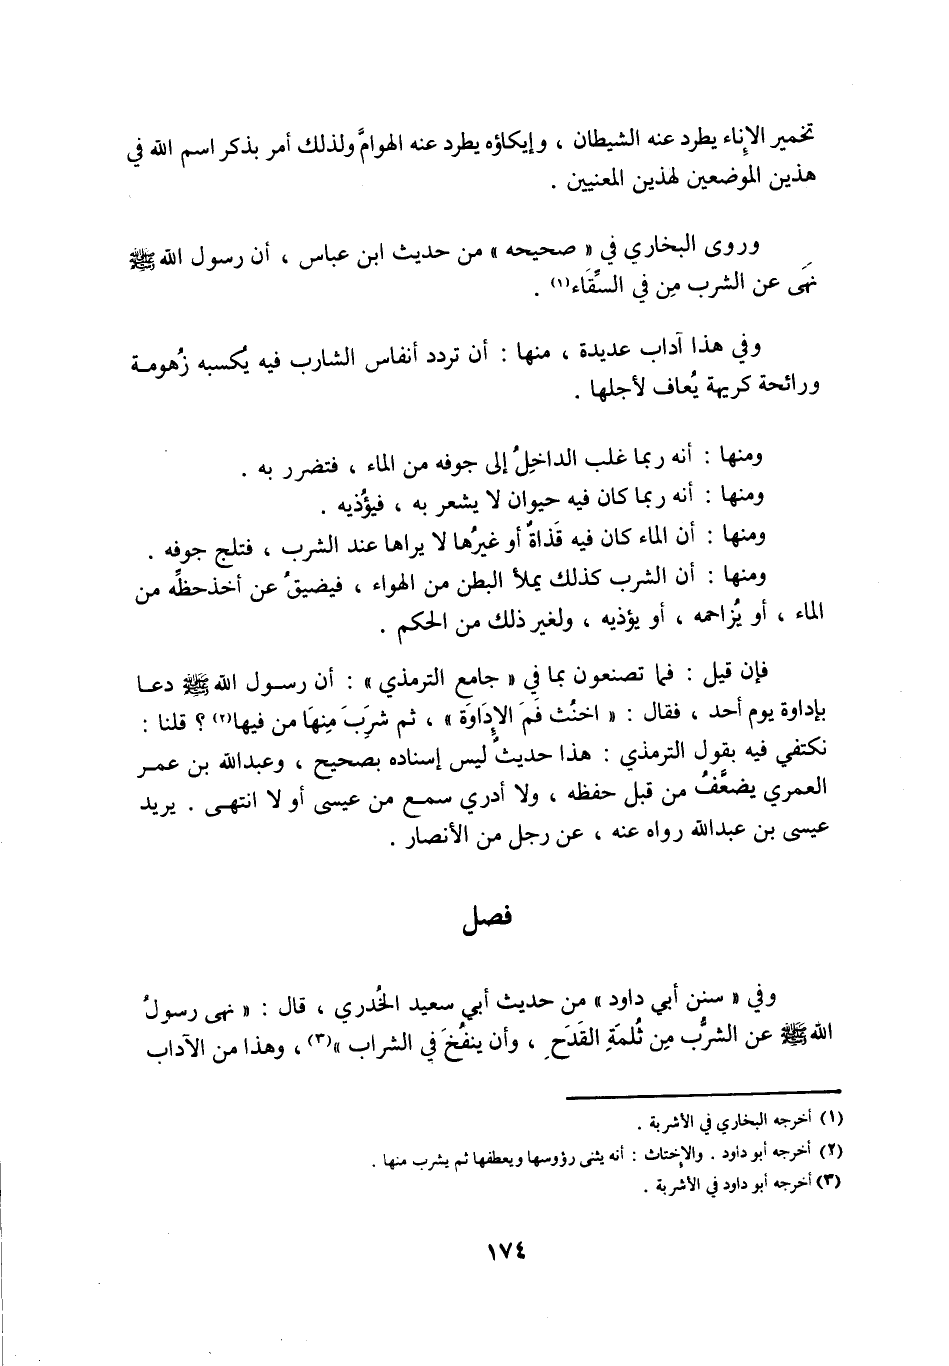 تخمير الإناء يطرد عنه الشيطان ، وإيكاؤه يطرد عنه الهوامَّ ولذلك أمر بذكر اسم الله في
هذين الموضعين لهذين المعنيين .
وروى البخاري في « صحيحه » من حديث ابن عباس ، أن رسول الله ﷺ
نهَى عن الشرب مِن في السِّقَاء(١) .
وفي هذا آداب عديدة ، منها : أن تردد أنفاس الشارب فيه يُكسبه زُهومـة
ورائحة كريهة يُعاف لأجلها .
ومنها : أنه ربما غلب الداخِلُ إلى جوفه من الماء ، فتضرر به .
ومنها : أنه ربما كان فيه حيوان لا يشعر به ، فيؤُذيه .
ومنها : أن الماء كان فيه قَذاةٌ أو غيرُها لا يراها عند الشرب ، فتلج جوفه .
ومنها : أن الشرب كذلك يملأ البطن من الهواء ، فيضيقُ عن أخذحظِّه من
الماء ، أو يُزاحمه ، أو يؤذيه ، ولغير ذلك من الحكم .
فإن قيل : فما تصنعون بما في « جامع الترمذي » : أن رسـول الله ﷺ دعـا
بإداوة يوم أحد ، فقال : « اخنُث فَمَ الإِدَاوَة » ، ثم شرِبَ مِنهَا من فيها(٢) ؟ قلنا :
نكتفي فيه بقول الترمذي : هذا حديثٌ ليس إسناده بصحيح ، وعبدالله بن عمـر
العمري يضعَّفُ من قبل حفظه ، ولا أدري سمـع من عيسى أو لا انتهـى . يريد
عيسى بن عبدالله رواه عنه ، عن رجل من الأنصار .
فصل
وفي « سنن أبي داود » من حديث أبي سعيد الخُدري ، قال : « نهى رسولُ
الله ﷺ عن الشرُّب مِن ثُلمَةِ القَدَحِ ، وأن ينفُخَ في الشراب »(٣) ، وهذا من الآداب
(١) أخرجه البخاري في الأشربة .
(٢) أخرجه أبو داود . والإختاث : أنه يثنى رؤوسها ويعطفها ثم يشرب منها .
(٣) أخرجه أبو داود في الأشربة .
١٧٤